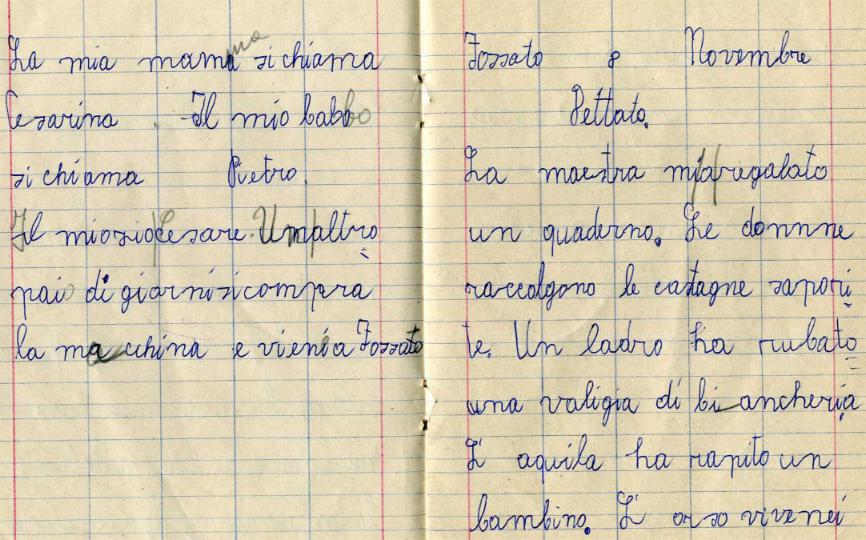 La mia mamma si chiama
Cesarina. Il mio babbo
si chiama Pietro.
Il mio zio Cesare. Un paltro
paio di giorni si compra
la macchina e vieni a Fossato
Fossato 8 Novembre
Dettato.
La maestra mi regalato
un quaderno. Le donnne
raccolgono le castagne sapori
te. Un ladro ha rubato
una valigia di biancheria
L' aquila ha rapito un
bambino. L' orso vive nei